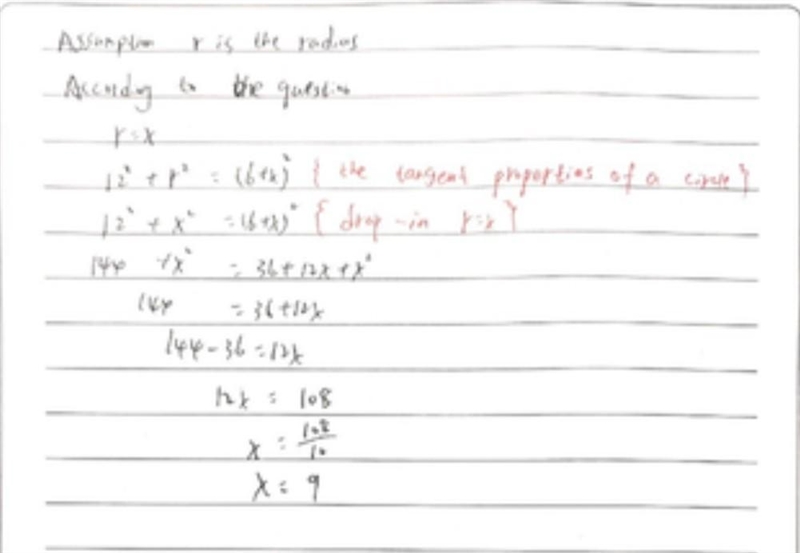 Assumption r is the radius
According to the question
r = x
12² + r² = (6+x)² { the tangent properties of a circle }
12² + x² = (6+x)² { drop-in r=x }
144 + x² = 36 + 12x + x²
144 = 36 + 12x
144 - 36 = 12x
12x = 108
x = 108/10
x = 9